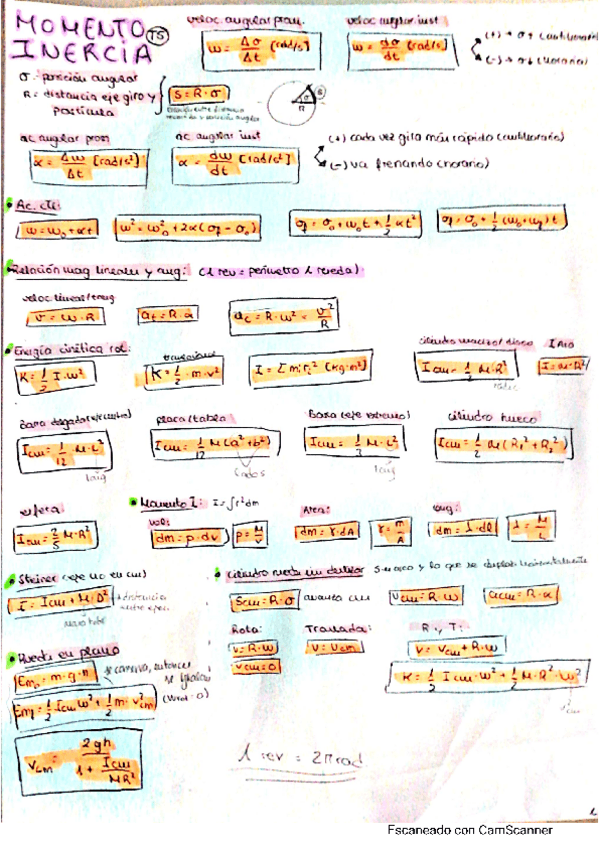 MOMENTO INERCIA (T5)
veloc. angular prom.
veloc angular inst
ω = Δσ/Δt [rad/s]
ω = dσ/dt [rad/s]
(+) → σ↑ (antihorario)
(-) → σ↓ (horario)
σ: posición angular
R = distancia eje giro y partícula
S = R·σ
R
ac angular prom
ac angular inst
α = Δω/Δt [rad/s²]
α = dω/dt [rad/s²]
(+) cada vez gira más rápido (antihorario)
(-) va frenando (horario)
Ac. cte:
ω = ω₀ + αt
ω² = ω₀² + 2α(σf - σ₀)
σf = σ₀ + ω₀t + 1/2 αt²
σf = σ₀ + 1/2 (ω₀ + ωf) t
Relación mag lineales y ang: (1 rev = perímetro 1 rueda)
veloc lineal/tang
v = ω·R
at = R·α
ac = R·ω² = v²/R
Energía cinética rot:
K = 1/2 I·ω²
K = 1/2·m·v²
I = Σmiri² [kg·m²]
cilindro macizo/disco
Icm = 1/2 M·R²
radio
I Aro
I = M·R²
barra delgada (eje centro)
Icm = 1/12 M·L²
larg
placa/tabla
Icm = 1/12 M(a² + b²)
lados
barra (eje extremo)
Icm = 1/3 M·L²
larg
cilindro hueco
Icm = 1/2 M(R₁² + R₂²)
esfera:
Icm = 2/5 M·R²
Momento I: I = ∫r²dm
vol:
dm = ρ·dV
ρ = M/V
Area:
dm = γ·dA
γ = m/A
long:
dm = λ·dl
λ = M/L
Steiner (eje no en cm)
I = Icm + M·D²
distancia entre ejes
masa total
Cilindro rueda sin deslizar
S arco y lo que se desplaza horizontalmente
Scm = R·σ
avanza cm
vcm = R·ω
acm = R·α
Rota:
v = R·ω
vcm = 0
Traslada:
v = vcm
R y T:
v = vcm + R·ω
K = 1/2 Icm·ω² + 1/2 M·R²·ω²
v²cm
Rueda en plano
Em₀ = m·g·h
Se conserva, entonces se igualan
(Wroz = 0)
Emf = 1/2 Icm ω² + 1/2 m·v²cm
vcm = 2gh / 1 + Icm/MR²
1 rev = 2π rad
Escaneado con CamScanner